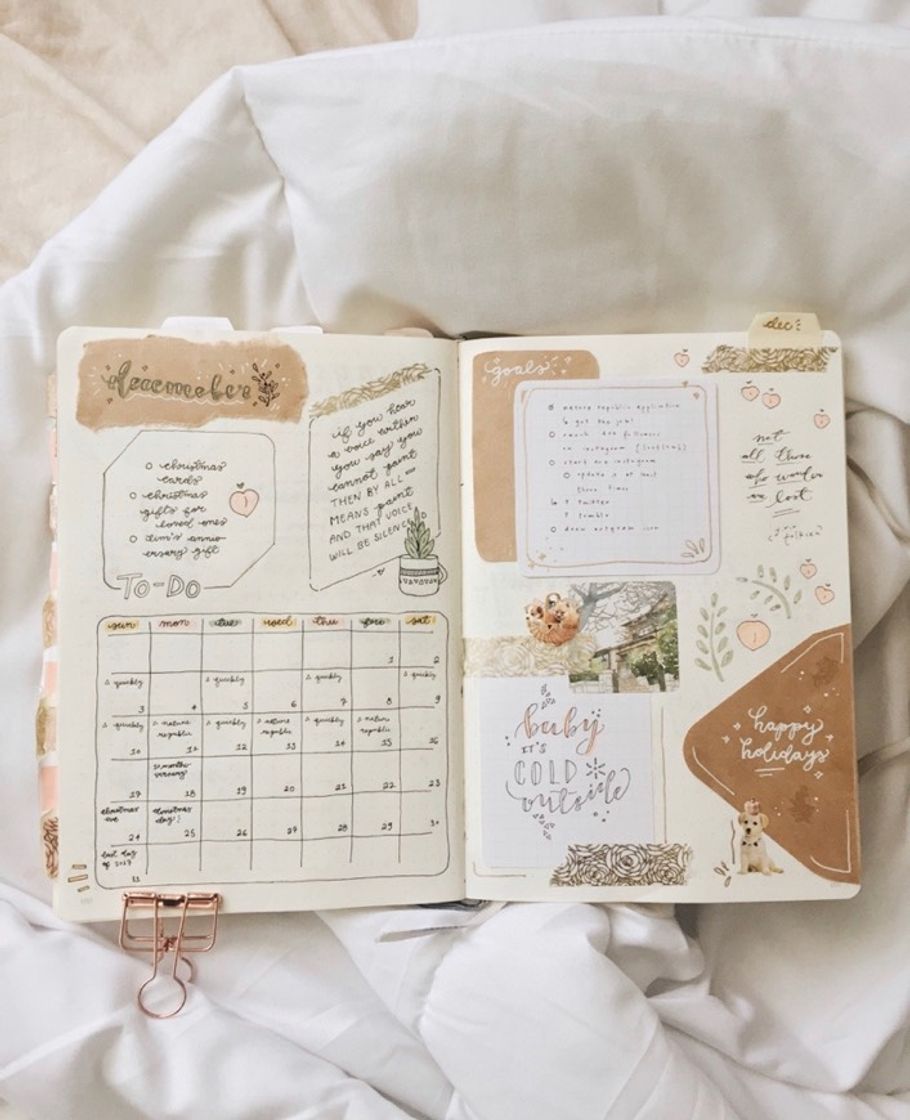 december
o christmas
cards
o christmas
gifts for
loved ones
o
ersary gift
TO-DO
if you hear
a voice within
you say you
cannot paint
THEN BY ALL
MEANS paint
AND THAT VOICE
WILL BE SILENCED
sun mon tue wed thu fri sat
1 2
Δ quickly Δ quickly Δ quickly Δ quickly
3 4 5 6 7 8 9
Δ quickly Δ nature republic Δ quickly Δ nature republic Δ quickly Δ nature republic
10 11 12 13 14 15 16
17 18 19 20 21 22 23
christmas eve christmas day!
24 25 26 27 28 29 30
last day
of 2017
dec
goals
o nature republic application
↳ get the job!
o reach followers
on instagram
o start instagram
o update at least
three times
↳ twitter
tumblr
o draw icon
not
all those
who wander
are lost
tolkien
baby
IT'S
COLD
outside
happy
holidays